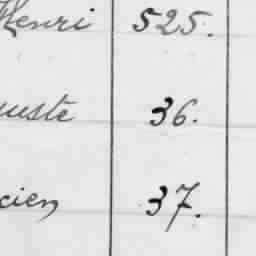 Henri 525.
uste 36.
cien 37.